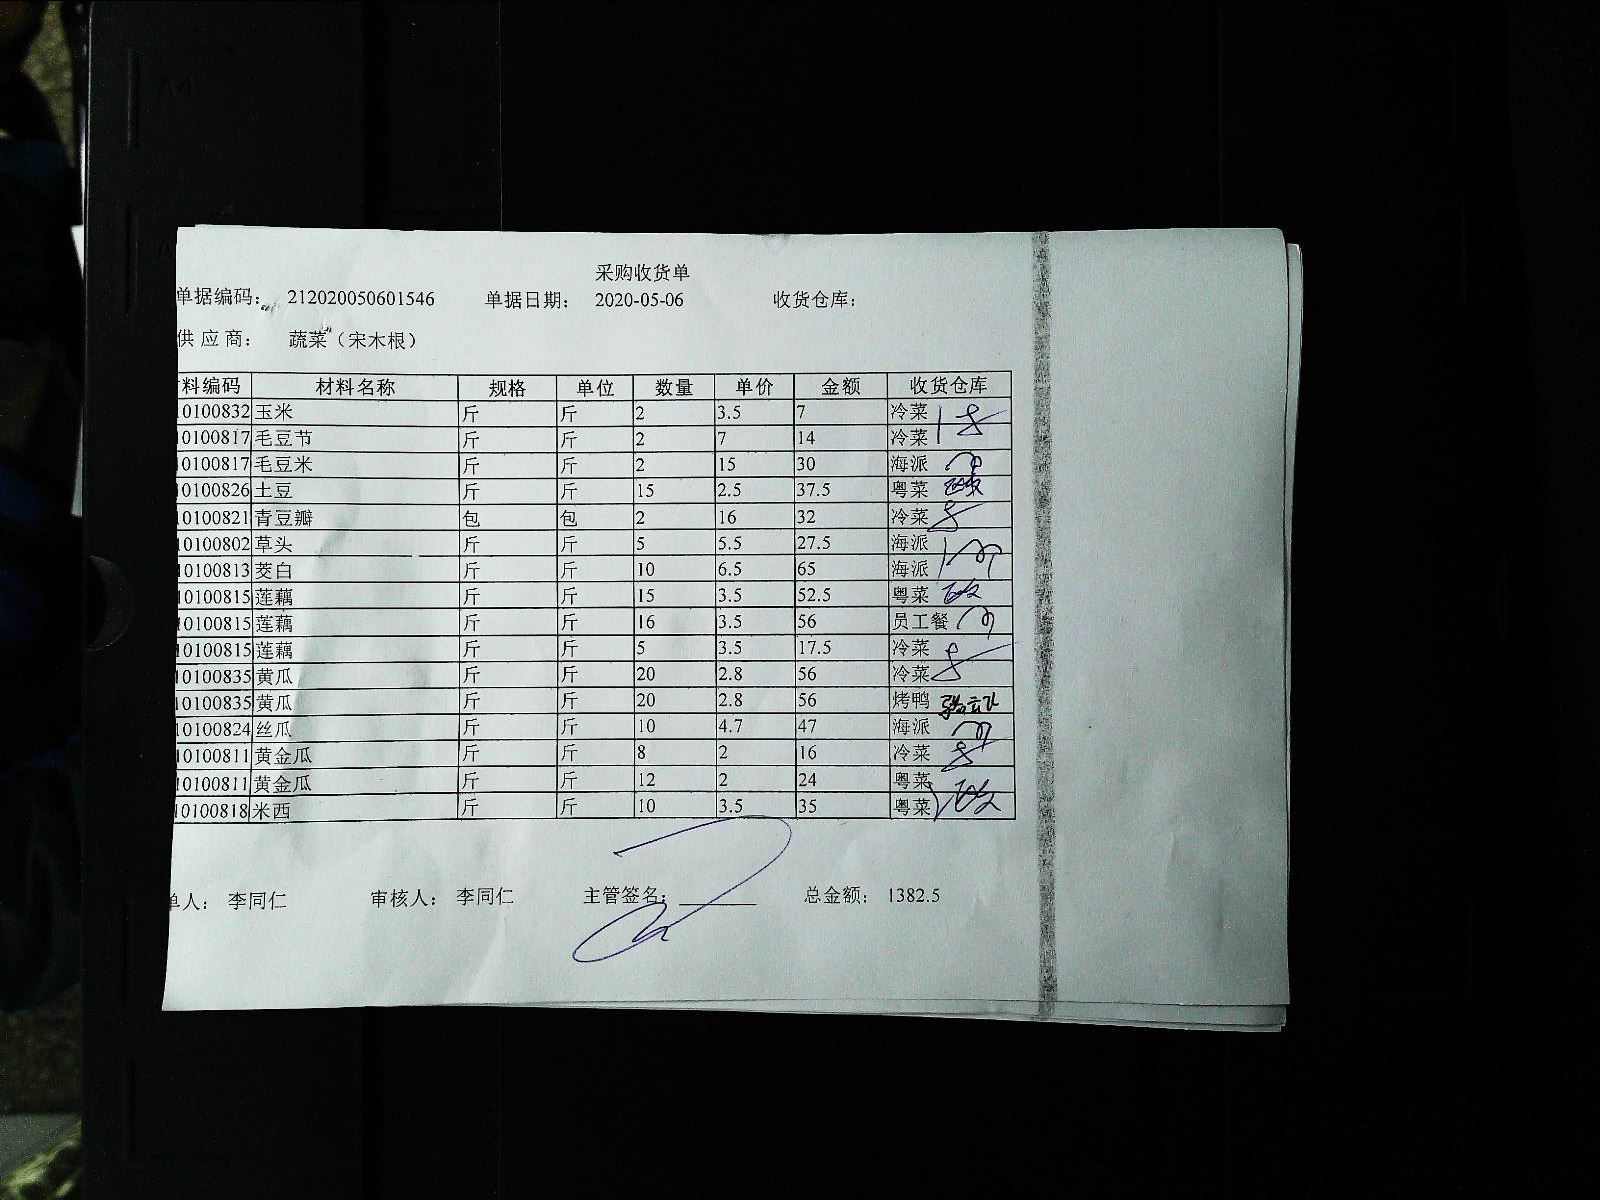 采购收货单
单据编码： 212020050601546 单据日期： 2020-05-06 收货仓库：
供应商： 蔬菜（宋木根）
料编码 材料名称 规格 单位 数量 单价 金额 收货仓库
10100832 玉米 斤 斤 2 3.5 7 冷菜
10100817 毛豆节 斤 斤 2 7 14 冷菜
10100817 毛豆米 斤 斤 2 15 30 海派
10100826 土豆 斤 斤 15 2.5 37.5 粤菜
10100821 青豆瓣 包 包 2 16 32 冷菜
10100802 草头 斤 斤 5 5.5 27.5 海派
10100813 茭白 斤 斤 10 6.5 65 海派
10100815 莲藕 斤 斤 15 3.5 52.5 粤菜
10100815 莲藕 斤 斤 16 3.5 56 员工餐
10100815 莲藕 斤 斤 5 3.5 17.5 冷菜
10100835 黄瓜 斤 斤 20 2.8 56 冷菜
10100835 黄瓜 斤 斤 20 2.8 56 烤鸭
10100824 丝瓜 斤 斤 10 4.7 47 海派
10100811 黄金瓜 斤 斤 8 2 16 冷菜
10100811 黄金瓜 斤 斤 12 2 24 粤菜
10100818 米西 斤 斤 10 3.5 35 粤菜
单人： 李同仁 审核人： 李同仁 主管签名： 总金额： 1382.5